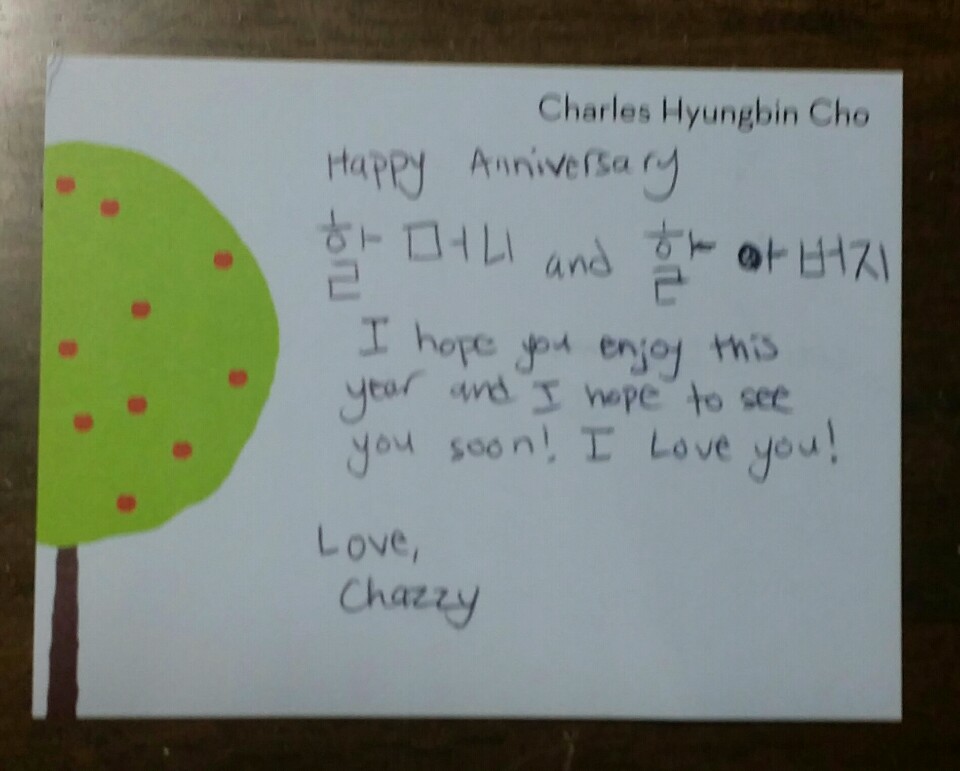 Charles Hyungbin Cho
Happy Anniversary
할머니 and 할아버지
I hope you enjoy this
year and I hope to see
you soon! I Love you!
Love,
Chazzy